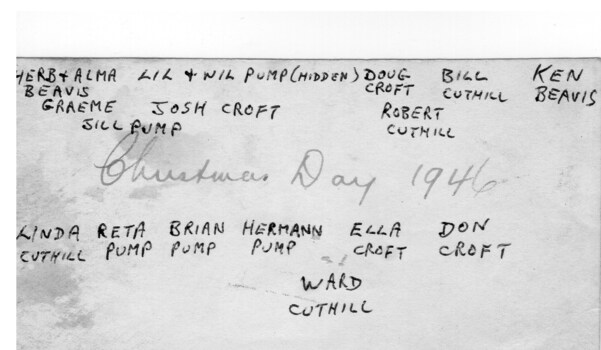 HERB & ALMA LIL & WIL PUMP (HIDDEN) DOUG BILL KEN
BEAVIS CROFT CUTHILL BEAVIS
GRAEME JOSH CROFT ROBERT
JILL PUMP CUTHILL
Christmas Day 1946
LINDA RETA BRIAN HERMANN ELLA DON
CUTHILL PUMP PUMP PUMP CROFT CROFT
WARD
CUTHILL